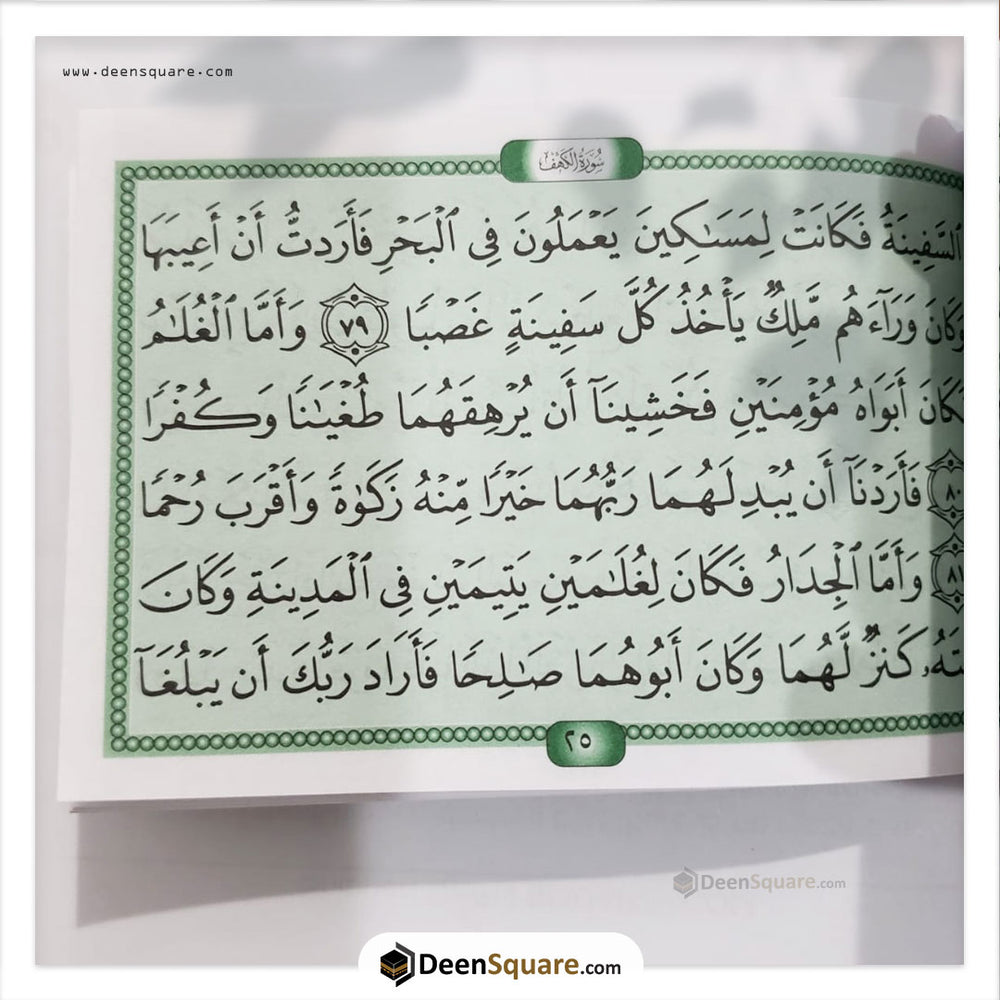 www.deensquare.com
سُورَةُ الكَهْفِ
السَّفِينَةُ فَكَانَتْ لِمَسَـٰكِينَ يَعْمَلُونَ فِي ٱلْبَحْرِ فَأَرَدتُّ أَنْ أَعِيبَهَا
وَكَانَ وَرَآءَهُم مَّلِكٌ يَأْخُذُ كُلَّ سَفِينَةٍ غَصْبًا ٧٩ وَأَمَّا ٱلْغُلَـٰمُ
فَكَانَ أَبَوَاهُ مُؤْمِنَيْنِ فَخَشِينَآ أَن يُرْهِقَهُمَا طُغْيَـٰنًا وَكُفْرًا
٨٠ فَأَرَدْنَآ أَن يُبْدِلَهُمَا رَبُّهُمَا خَيْرًا مِّنْهُ زَكَوٰةً وَأَقْرَبَ رُحْمًا
٨١ وَأَمَّا ٱلْجِدَارُ فَكَانَ لِغُلَـٰمَيْنِ يَتِيمَيْنِ فِي ٱلْمَدِينَةِ وَكَانَ
كَنزٌ لَّهُمَا وَكَانَ أَبُوهُمَا صَـٰلِحًا فَأَرَادَ رَبُّكَ أَن يَبْلُغَآ
٢٥
DeenSquare.com
DeenSquare.com